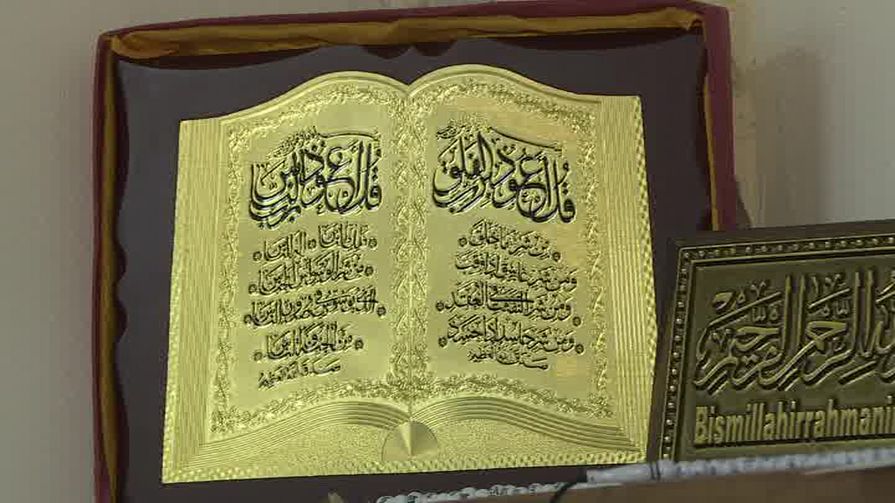 قل أعوذ برب الفلق
من شر ما خلق
ومن شر غاسق إذا وقب
ومن شر النفاثات في العقد
ومن شر حاسد إذا حسد
صدق الله العظيم
قل أعوذ برب الناس
ملك الناس إله الناس
من شر الوسواس الخناس
الذي يوسوس في صدور الناس
من الجنة والناس
صدق الله العظيم
الله الرحمن الرحيم
Bismillahirrahmani